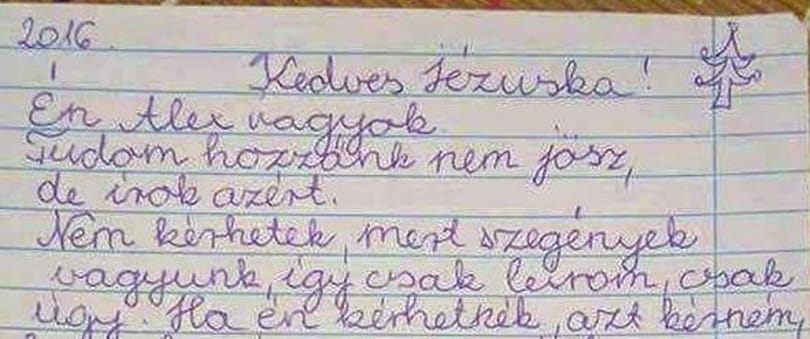 2016.
Kedves Jézuska!
Én Alex vagyok.
Tudom hozzánk nem jösz,
de irok azért.
Nem kérhetek, mert szegények
vagyunk, így csak leirom, csak
úgy. Ha én kérhetnék, azt kérném,